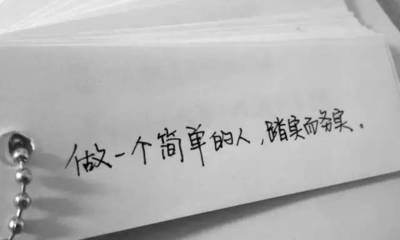 做一个简单的人,踏实而务实。